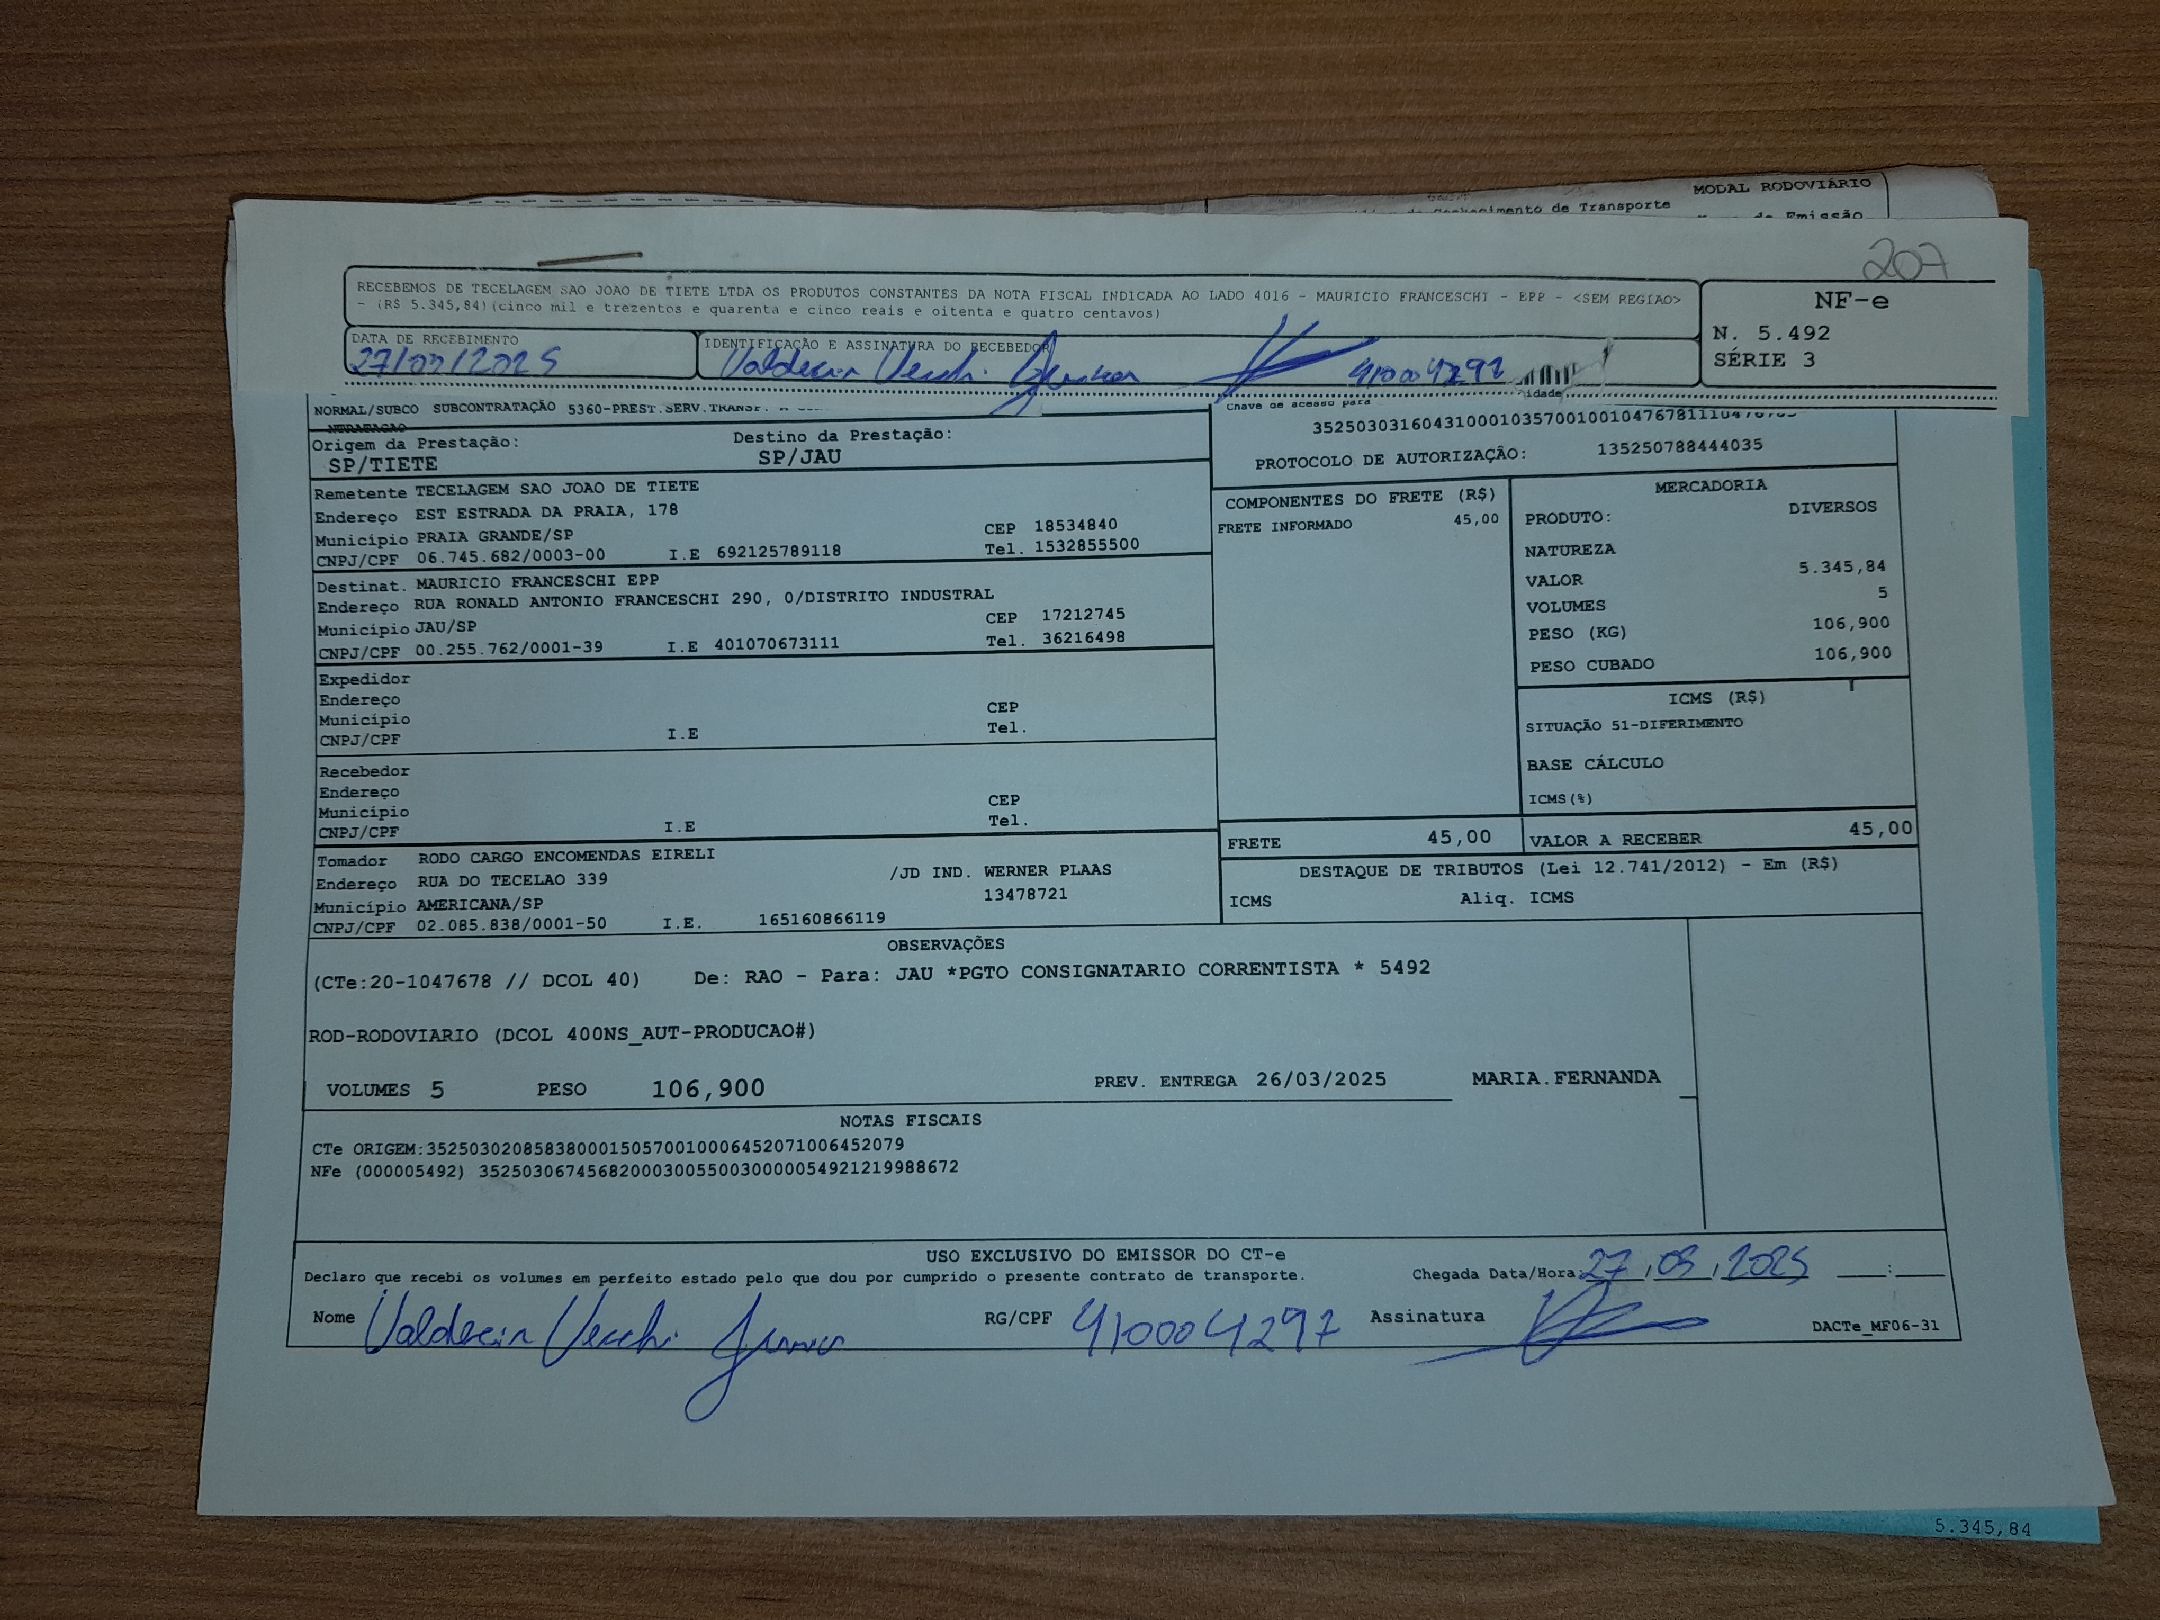 MODAL RODOVIÁRIO
de Transporte
207
RECEBEMOS DE TECELAGEM SAO JOAO DE TIETE LTDA OS PRODUTOS CONSTANTES DA NOTA FISCAL INDICADA AO LADO 4016 - MAURICIO FRANCESCHI - EPP - <SEM REGIAO>
- (R$ 5.345,84)(cinco mil e trezentos e quarenta e cinco reais e oitenta e quatro centavos)
NF-e
N. 5.492
SÉRIE 3
DATA DE RECEBIMENTO
27/03/2025
IDENTIFICAÇÃO E ASSINATURA DO RECEBEDOR
Valdecir Vecchi Junior 410004297
NORMAL/SUBCO SUBCONTRATAÇÃO 5360-PREST.SERV.TRANSP.
Chave de acesso para
PROTOCOLO DE AUTORIZAÇÃO: 135250788444035
Origem da Prestação: Destino da Prestação:
SP/TIETE SP/JAU
Remetente TECELAGEM SAO JOAO DE TIETE
Endereço EST ESTRADA DA PRAIA, 178
Município PRAIA GRANDE/SP CEP 18534840
CNPJ/CPF 06.745.682/0003-00 I.E 692125789118 Tel. 1532855500
Destinat. MAURICIO FRANCESCHI EPP
Endereço RUA RONALD ANTONIO FRANCESCHI 290, 0/DISTRITO INDUSTRAL
Município JAU/SP CEP 17212745
CNPJ/CPF 00.255.762/0001-39 I.E 401070673111 Tel. 36216498
Expedidor
Endereço
Município CEP
CNPJ/CPF I.E Tel.
Recebedor
Endereço
Município CEP
CNPJ/CPF I.E Tel.
Tomador RODO CARGO ENCOMENDAS EIRELI
Endereço RUA DO TECELAO 339 /JD IND. WERNER PLAAS
Município AMERICANA/SP 13478721
CNPJ/CPF 02.085.838/0001-50 I.E. 165160866119
COMPONENTES DO FRETE (R$)
FRETE INFORMADO 45,00
MERCADORIA
PRODUTO: DIVERSOS
NATUREZA
VALOR 5.345,84
VOLUMES 5
PESO (KG) 106,900
PESO CUBADO 106,900
ICMS (R$)
SITUAÇÃO 51-DIFERIMENTO
BASE CÁLCULO
ICMS(%)
FRETE 45,00 VALOR A RECEBER 45,00
DESTAQUE DE TRIBUTOS (Lei 12.741/2012) - Em (R$)
ICMS Aliq. ICMS
OBSERVAÇÕES
(CTe:20-1047678 // DCOL 40) De: RAO - Para: JAU *PGTO CONSIGNATARIO CORRENTISTA * 5492
ROD-RODOVIARIO (DCOL 400NS_AUT-PRODUCAO#)
VOLUMES 5 PESO 106,900 PREV. ENTREGA 26/03/2025 MARIA.FERNANDA
NOTAS FISCAIS
CTe ORIGEM:35250302085838000150570010006452071006452079
NFe (000005492) 35250306745682000300550030000054921219988672
USO EXCLUSIVO DO EMISSOR DO CT-e
Declaro que recebi os volumes em perfeito estado pelo que dou por cumprido o presente contrato de transporte. Chegada Data/Hora: 27,03,2025 :
Nome Valdecir Vecchi Junior RG/CPF 410004297 Assinatura
DACTe_MF06-31
5.345,84